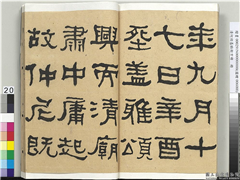 年九月十
七日辛酉
塟蓋雅頌
興而清廟
肅中庸起
故仲尼既
20